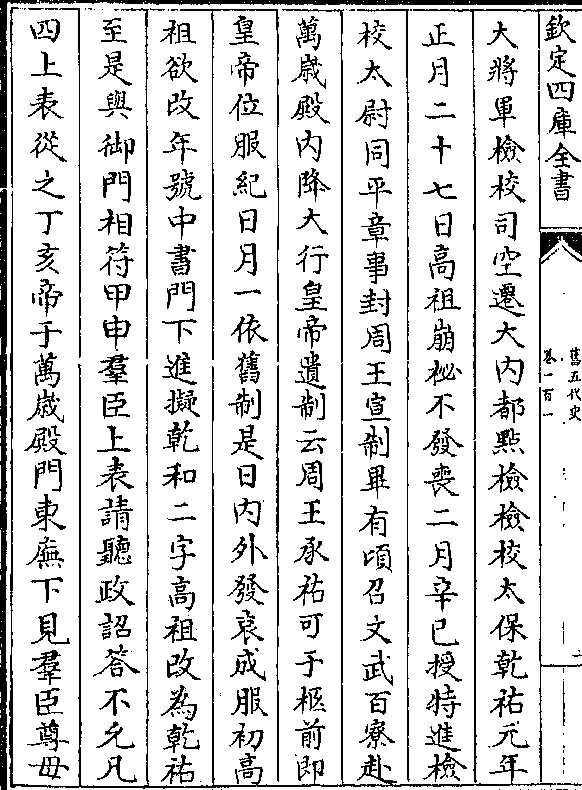 欽定四庫全書
舊五代史
卷一百一
二
大將軍檢校司空遷大內都點檢檢校太保乾祐元年
正月二十七日高祖崩祕不發喪二月辛已授特進檢
校太尉同平章事封周王宣制畢有頃召文武百寮赴
萬歲殿內降大行皇帝遺制云周王承祐可于柩前即
皇帝位服紀日月一依舊制是日內外發哀成服初高
祖欲改年號中書門下進擬乾和二字高祖改為乾祐
至是與御門相符甲申羣臣上表請聽政詔答不允凡
四上表從之丁亥帝于萬歲殿門東廡下見羣臣尊母